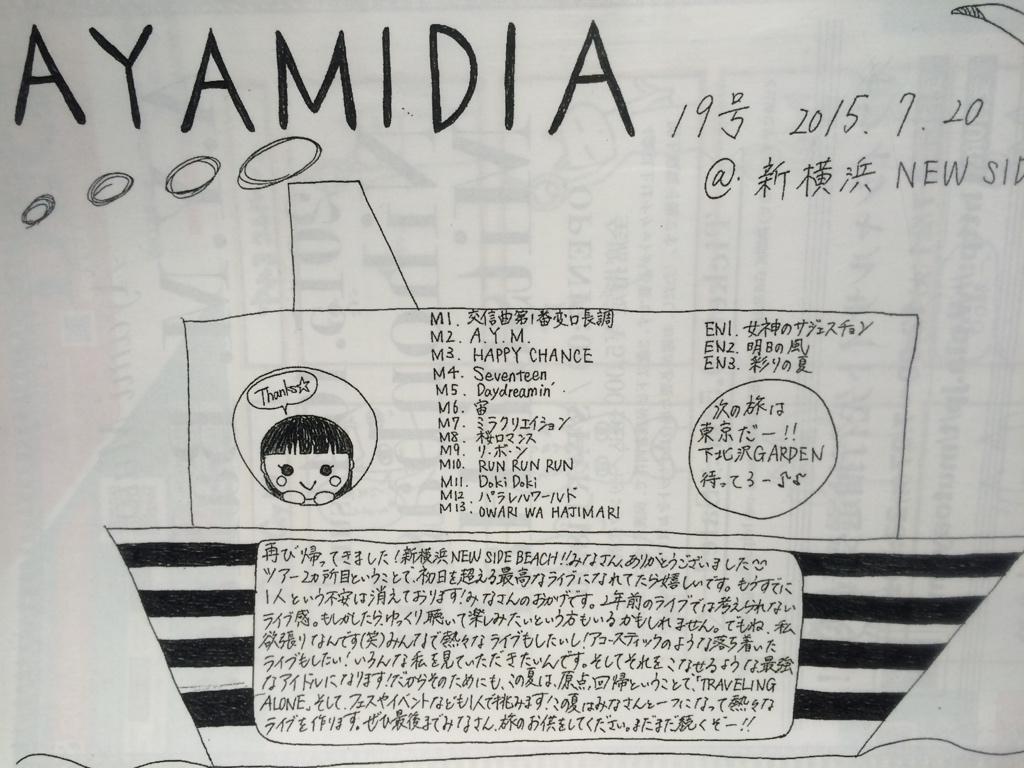 AYAMIDIA
19号 2015.7.20
@.新横浜 NEW SID
M1. 交信曲第1番変ロ長調
M2. A.Y.M.
M3. HAPPY CHANCE
M4. Seventeen
M5. Daydreamin'
M6. 宙
M7. ミラクリエイション
M8. 桜ロマンス
M9. リ・ボ・ン
M10. RUN RUN RUN
M11. Doki Doki
M12. パラレルワールド
M13. OWARI WA HAJIMARI
EN1. 女神のサジェスチョン
EN2. 明日の風
EN3. 彩りの夏
Thanks☆
次の旅は
東京だー!!
下北沢GARDEN
待ってろー♪♪
再び帰ってきました!新横浜NEW SIDE BEACH!!みなさん、ありがとうございました
ツアー2カ所目ということで、初日を超える最高なライブになれてたら嬉しいです。もうすでに
1人という不安は消えております!みなさんのおかげです。2年前のライブでは考えられない
ライブ感。もしかしたらゆっくり聴いて楽しみたいという方もいるかもしれません。でもね、私
欲張りなんです(笑)みんなで熱々なライブもしたいし!アコースティックのような落ち着いた
ライブもしたい!いろんな私を見ていただきたいんです。そしてそれをこなせるような最強
なアイドルになります!だからそのためにも、この夏は、原点回帰ということで、「TRAVELING
ALONE」そして、フェスやイベントなども1人で挑みます!この夏はみなさんと一つになって熱々な
ライブを作ります。ぜひ最後までみなさん、旅のお供をしてください。まだまだ続くぞー!!